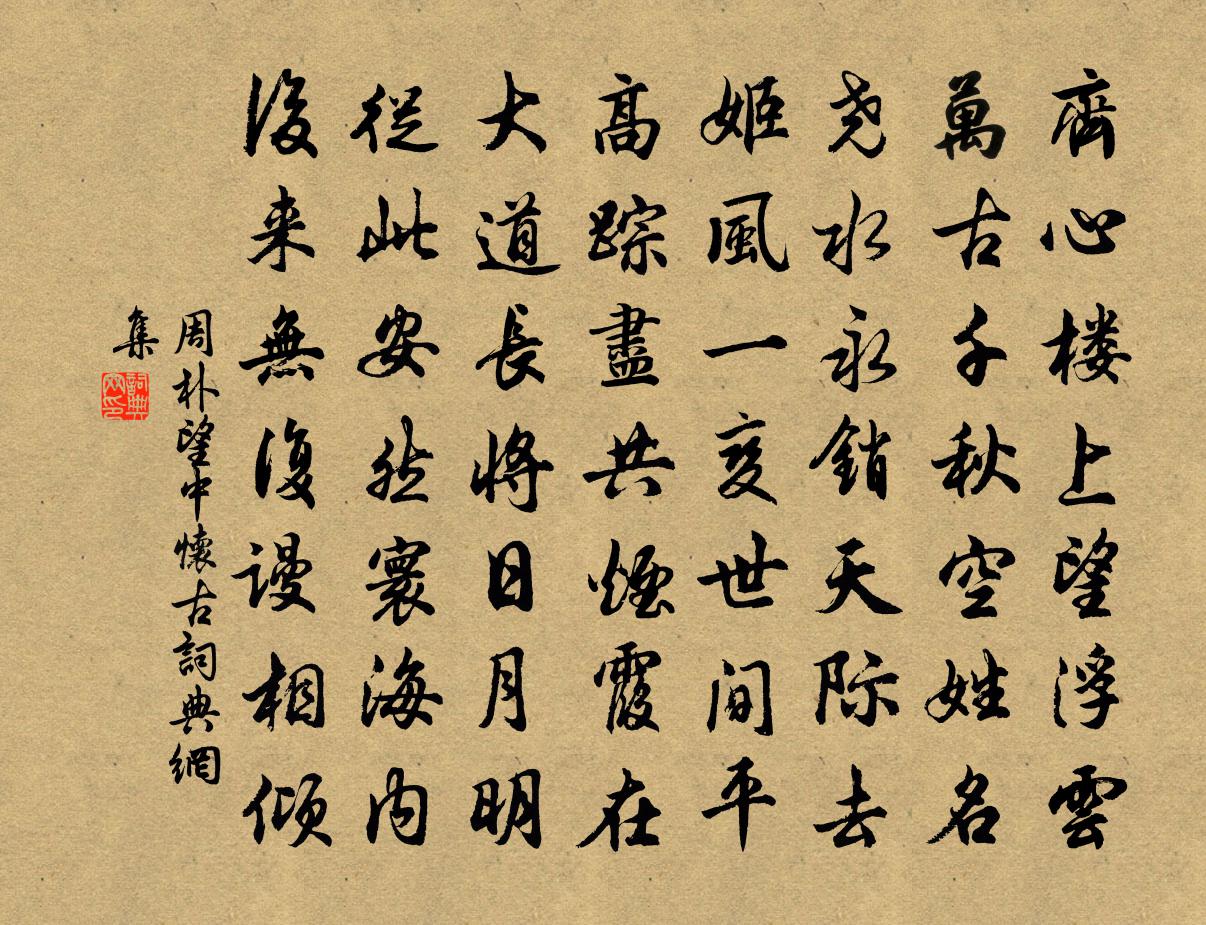 齊心楼上望浮雲
萬古千秋空姓名
尧水永銷天际去
姬風一变世间平
高踪盡共煙霞在
大道長将日月明
從此安然寰海内
後来無復謾相倾
周朴望中懷古詞典網
集
詞典
网印